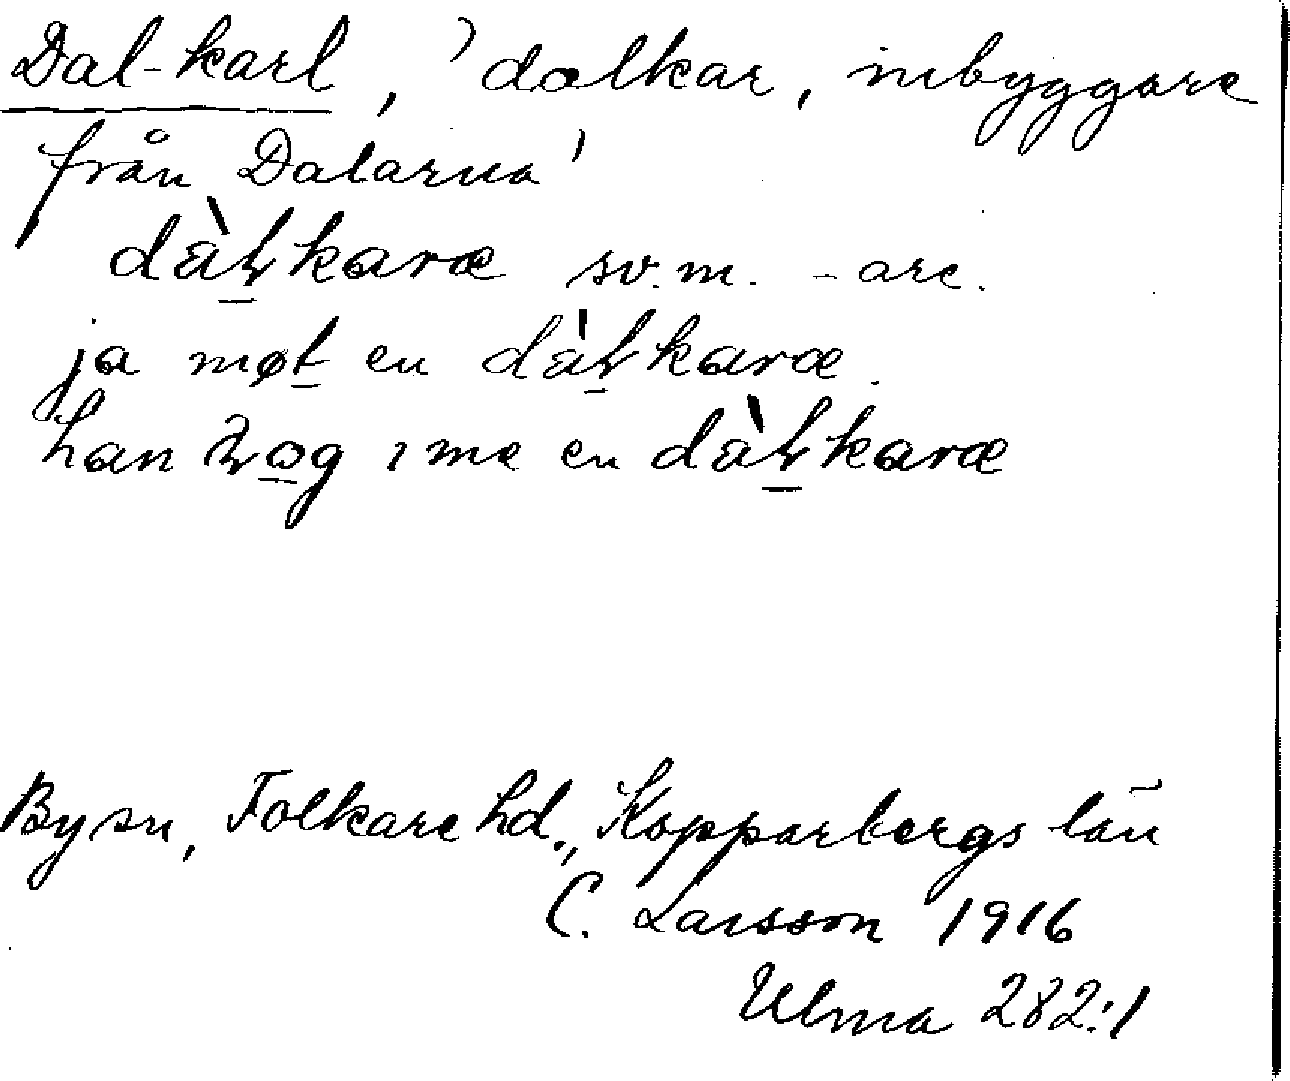 Dal-karl, 'dalkar, inbyggare
från Dalarna'
dàɫkaræ sv.m. -are.
ja møt en dàɫkaræ.
han og i me en dàɫkaræ
By sn, Folkare hd., Kopparbergs län
C. Larsson 1916
Ulma 282:1